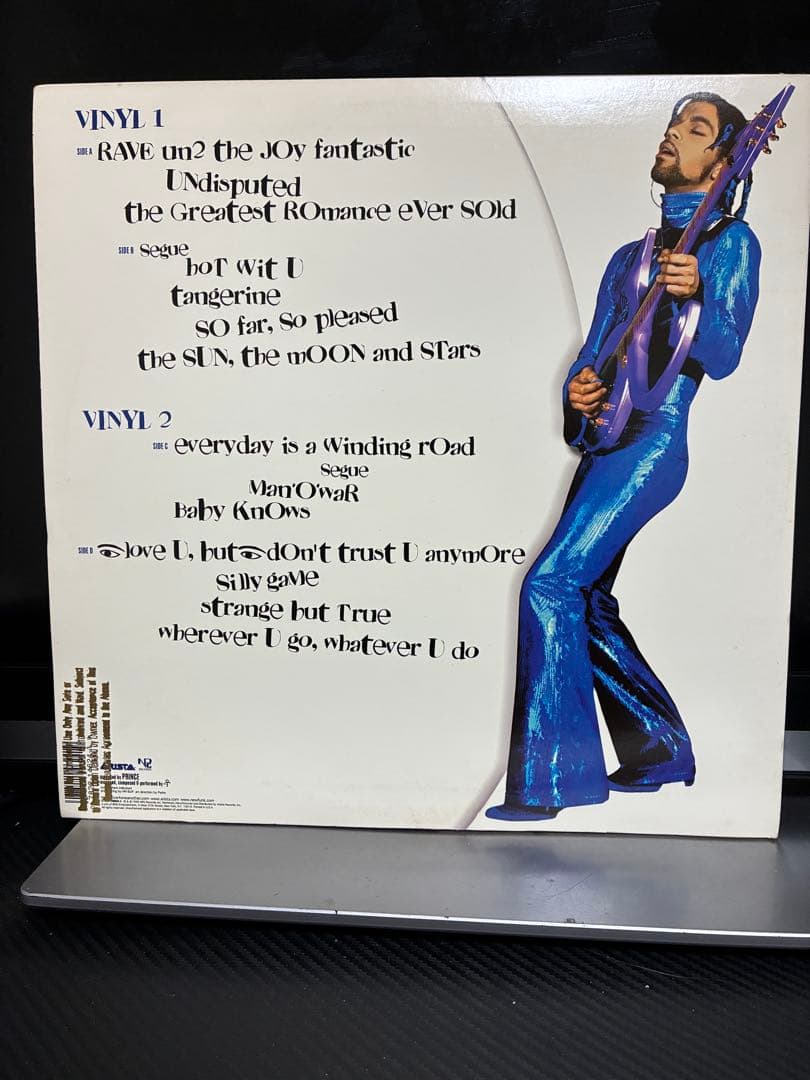 VINYL 1
SIDE A RAVE un2 the JOy fantastic
UNdisputed
the Greatest ROmance eVer SOld
SIDE B Segue
hoT wit U
tangerine
SO far, So pleased
the SUN, the mOON and STars
VINYL 2
SIDE C everyday is a Winding rOad
Segue
Man'O'waR
Baby KnOws
SIDE D love U, but dOn't trust U anymOre
Silly gaMe
strange but True
wherever U go, whatever U do
ARISTA NPG
PRINCE